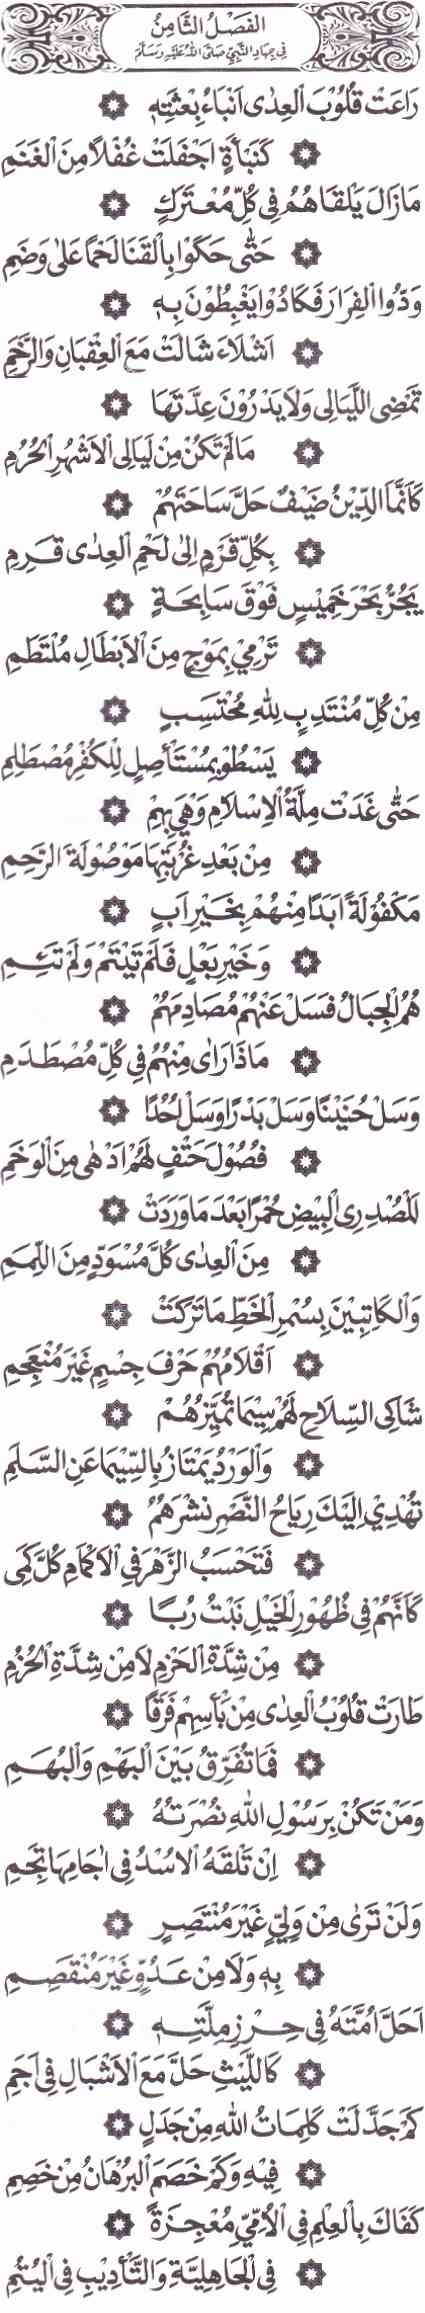 الفَصْلُ الثَّامِنُ
فِي جِهَادِ النَّبِيِّ صَلَّى اللهُ عَلَيْهِ وَسَلَّمَ
رَاعَتْ قُلُوْبَ الْعِدٰى اَنْبَاءُ بِعْثَتِهٖ
كَنَبْأَةٍ اَجْفَلَتْ غُفْلًا مِنَ الْغَنَمِ
مَازَالَ يَلْقَاهُمُ فِي كُلِّ مُعْتَرَكٍ
حَتّٰى حَكَوْا بِالْقَنَا لَحْمًا عَلٰى وَضَمِ
وَدُّوا الْفِرَارَ فَكَادُوْا يَغْبِطُوْنَ بِهٖ
اَشْلَاءَ شَالَتْ مَعَ الْعِقْبَانِ وَالرَّخَمِ
تَمْضِى اللَّيَالِى وَلَا يَدْرُوْنَ عِدَّتَهَا
مَالَمْ تَكُنْ مِنْ لَيَالِى الْاَشْهُرِ الْحُرُمِ
كَاَنَّمَا الدِّيْنُ ضَيْفٌ حَلَّ سَاحَتَهُمْ
بِكُلِّ قَرْمٍ اِلٰى لَحْمِ الْعِدٰى قَرِمِ
يَجُرُّ بَحْرَ خَمِيْسٍ فَوْقَ سَابِحَةٍ
تَرْمِيْ بِمَوْجٍ مِنَ الْاَبْطَالِ مُلْتَطِمِ
مِنْ كُلِّ مُنْتَدِبٍ لِلّٰهِ مُحْتَسِبٍ
يَسْطُوْ بِمُسْتَأْصِلٍ لِلْكُفْرِ مُصْطَلِمِ
حَتّٰى غَدَتْ مِلَّةُ الْاِسْلَامِ وَهْيَ بِهِمْ
مِنْ بَعْدِ غُرْبَتِهَا مَوْصُوْلَةَ الرَّحِمِ
مَكْفُوْلَةً اَبَدًا مِنْهُمْ بِخَيْرِ اَبٍ
وَخَيْرِ بَعْلٍ فَلَمْ تَيْتَمْ وَلَمْ تَئِمِ
هُمُ الْجِبَالُ فَسَلْ عَنْهُمْ مُصَادِمَهُمْ
مَاذَا رَاٰى مِنْهُمُ فِي كُلِّ مُصْطَدَمِ
وَسَلْ حُنَيْنًا وَسَلْ بَدْرًا وَسَلْ اُحُدًا
فُصُوْلَ حَتْفٍ لَهُمْ اَدْهٰى مِنَ الْوَخَمِ
اَلْمُصْدِرِى الْبِيْضِ حُمْرًا بَعْدَ مَا وَرَدَتْ
مِنَ الْعِدٰى كُلَّ مُسْوَدٍّ مِنَ اللِّمَمِ
وَالْكَاتِبِيْنَ بِسُمْرِ الْخَطِّ مَا تَرَكَتْ
اَقْلَامُهُمْ حَرْفَ جِسْمٍ غَيْرَ مُنْعَجِمِ
شَاكِى السِّلَاحِ لَهُمْ سِيْمَا تُمَيِّزُهُمْ
وَالْوَرْدُ يَمْتَازُ بِالسِّيْمَا عَنِ السَّلَمِ
تُهْدِيْ اِلَيْكَ رِيَاحُ النَّصْرِ نَشْرَهُمُ
فَتَحْسَبُ الزَّهْرَ فِي الْاَكْمَامِ كُلَّ كَمِى
كَاَنَّهُمْ فِي ظُهُوْرِ الْخَيْلِ نَبْتُ رُبًا
مِنْ شِدَّةِ الْحَزْمِ لَا مِنْ شِدَّةِ الْحُزُمِ
طَارَتْ قُلُوْبُ الْعِدٰى مِنْ بَأْسِهِمْ فَرَقًا
فَمَا تُفَرِّقُ بَيْنَ الْبَهْمِ وَالْبُهَمِ
وَمَنْ تَكُنْ بِرَسُوْلِ اللهِ نُصْرَتُهُ
اِنْ تَلْقَهُ الْاُسْدُ فِى اٰجَامِهَا تَجِمِ
وَلَنْ تَرٰى مِنْ وَلِيٍّ غَيْرَ مُنْتَصِرٍ
بِهٖ وَلَا مِنْ عَدُوٍّ غَيْرَ مُنْقَصِمِ
اَحَلَّ اُمَّتَهُ فِى حِرْزِ مِلَّتِهٖ
كَاللَّيْثِ حَلَّ مَعَ الْاَشْبَالِ فِى اَجَمِ
كَمْ جَدَّلَتْ كَلِمَاتُ اللهِ مِنْ جَدَلٍ
فِيْهِ وَكَمْ خَصَمَ الْبُرْهَانُ مِنْ خَصِمِ
كَفَاكَ بِالْعِلْمِ فِى الْاُمِّيِّ مُعْجِزَةً
فِى الْجَاهِلِيَّةِ وَالتَّأْدِيْبِ فِى الْيُتُمِ